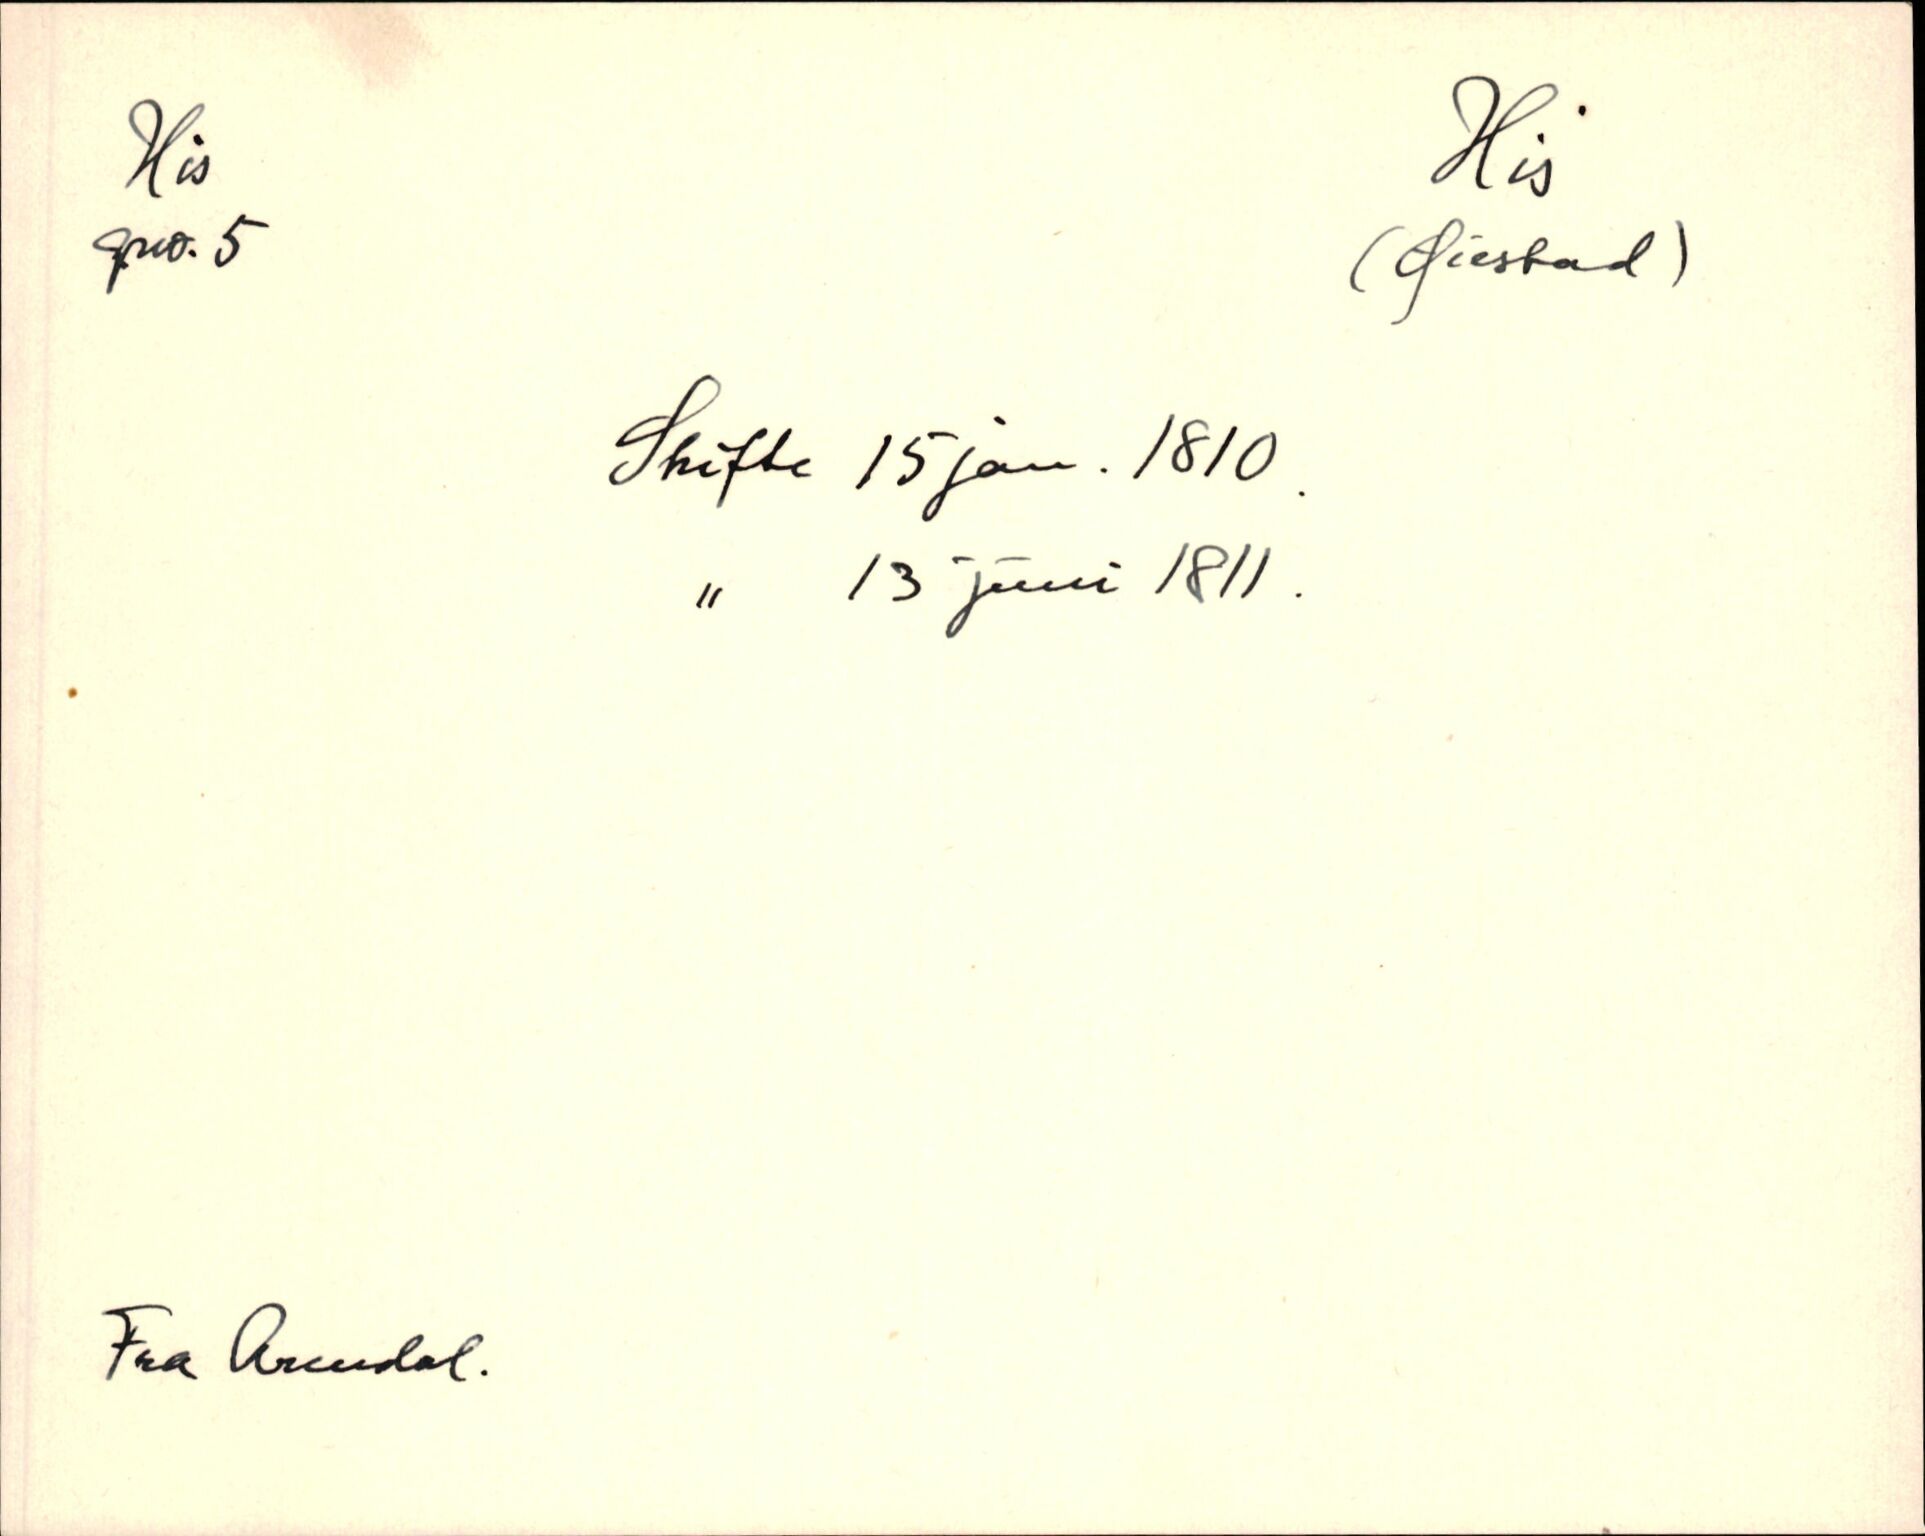 His
gno. 5
His
(Øiestad)
Skifte 15 jan. 1810.
" 13 juni 1811.
Fra Arendal.